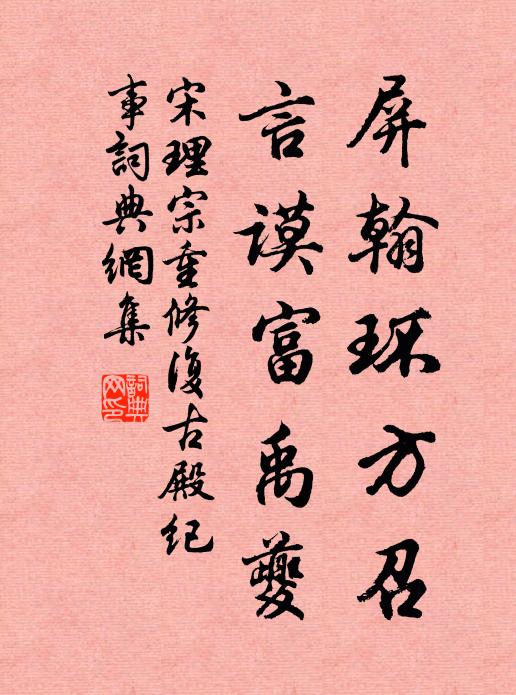 屏翰环方召
言謨富禹夔
宋理宗重修復古殿紀
事詞典網集
詞典網印